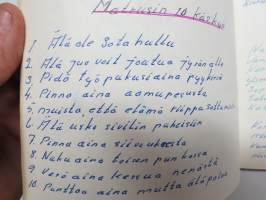 Matruusin 10 käskyä
1 Älä ole Sotahullu
2. Älä juo voit joutua Tyrmälle
3. Pidä Työpukusi aina pyykinä
4. Pinno aina aamupesusta
5. muista, että elämä riippuu sattumasta
6. Älä usko siviilin puheisiin
7. Pinno aina siivouksesta
8. Nuku aina toisen punkassa
9. Verä aina kessua nenästä
10. Punttaa aina mutta älä